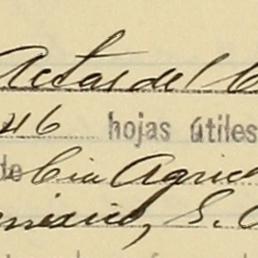 Actas del
46 hojas útiles
de Cia Agric
México, S. A